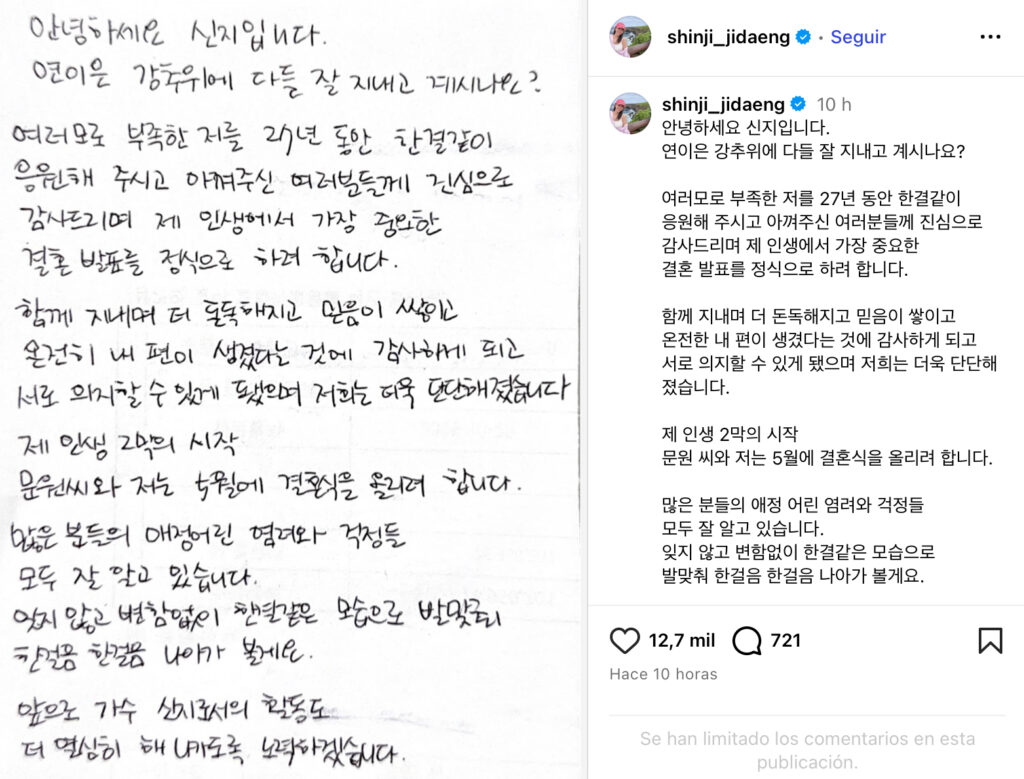 안녕하세요 신지입니다.
연이은 강추위에 다들 잘 지내고 계시나요?
여러모로 부족한 저를 27년 동안 한결같이
응원해 주시고 아껴주신 여러분들께 진심으로
감사드리며 제 인생에서 가장 중요한
결혼 발표를 정식으로 하려 합니다.
함께 지내며 더 돈독해지고 믿음이 쌓이고
온전히 내 편이 생겼다는 것에 감사하게 되고
서로 의지할 수 있게 됐으며 저희는 더욱 단단해졌습니다
제 인생 2막의 시작
문원씨와 저는 5월에 결혼식을 올리려 합니다.
많은 분들의 애정어린 염려와 걱정들
모두 잘 알고 있습니다.
잊지 않고 변함없이 한결같은 모습으로 발맞춰
한걸음 한걸음 나아가 볼게요.
앞으로 가수 신지로서의 활동도
더 열심히 해 나가도록 노력하겠습니다.
shinji_jidaeng · Seguir
shinji_jidaeng 10 h
안녕하세요 신지입니다.
연이은 강추위에 다들 잘 지내고 계시나요?
여러모로 부족한 저를 27년 동안 한결같이
응원해 주시고 아껴주신 여러분들께 진심으로
감사드리며 제 인생에서 가장 중요한
결혼 발표를 정식으로 하려 합니다.
함께 지내며 더 돈독해지고 믿음이 쌓이고
온전한 내 편이 생겼다는 것에 감사하게 되고
서로 의지할 수 있게 됐으며 저희는 더욱 단단해
졌습니다.
제 인생 2막의 시작
문원 씨와 저는 5월에 결혼식을 올리려 합니다.
많은 분들의 애정 어린 염려와 걱정들
모두 잘 알고 있습니다.
잊지 않고 변함없이 한결같은 모습으로
발맞춰 한걸음 한걸음 나아가 볼게요.
12,7 mil 721
Hace 10 horas
Se han limitado los comentarios en esta
publicación.